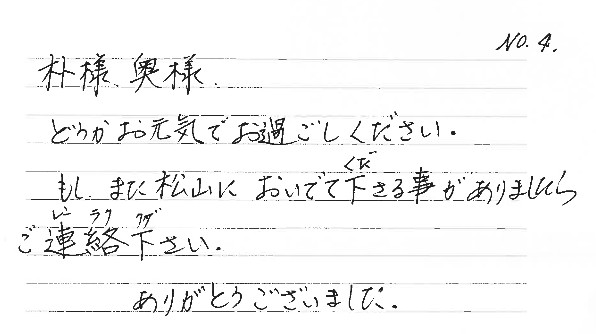 No. 4.
朴様、奥様、
どうかお元気でお過ごしください。
くだ
もし、また松山においでて下さる事がありましたら
レン ラク クダ
ご連絡下さい。
ありがとうございました。